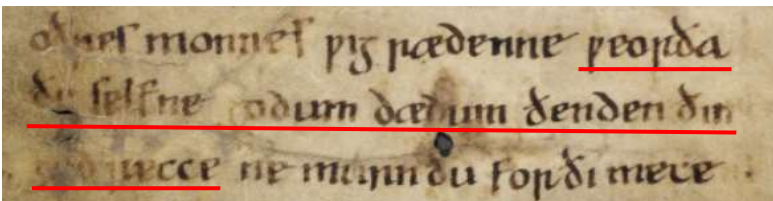 oðres monnes ƿigrædenne ƿeorða
ðe selfne godum dædum ðenden ðin
god recce ne murn ðu for ði mece